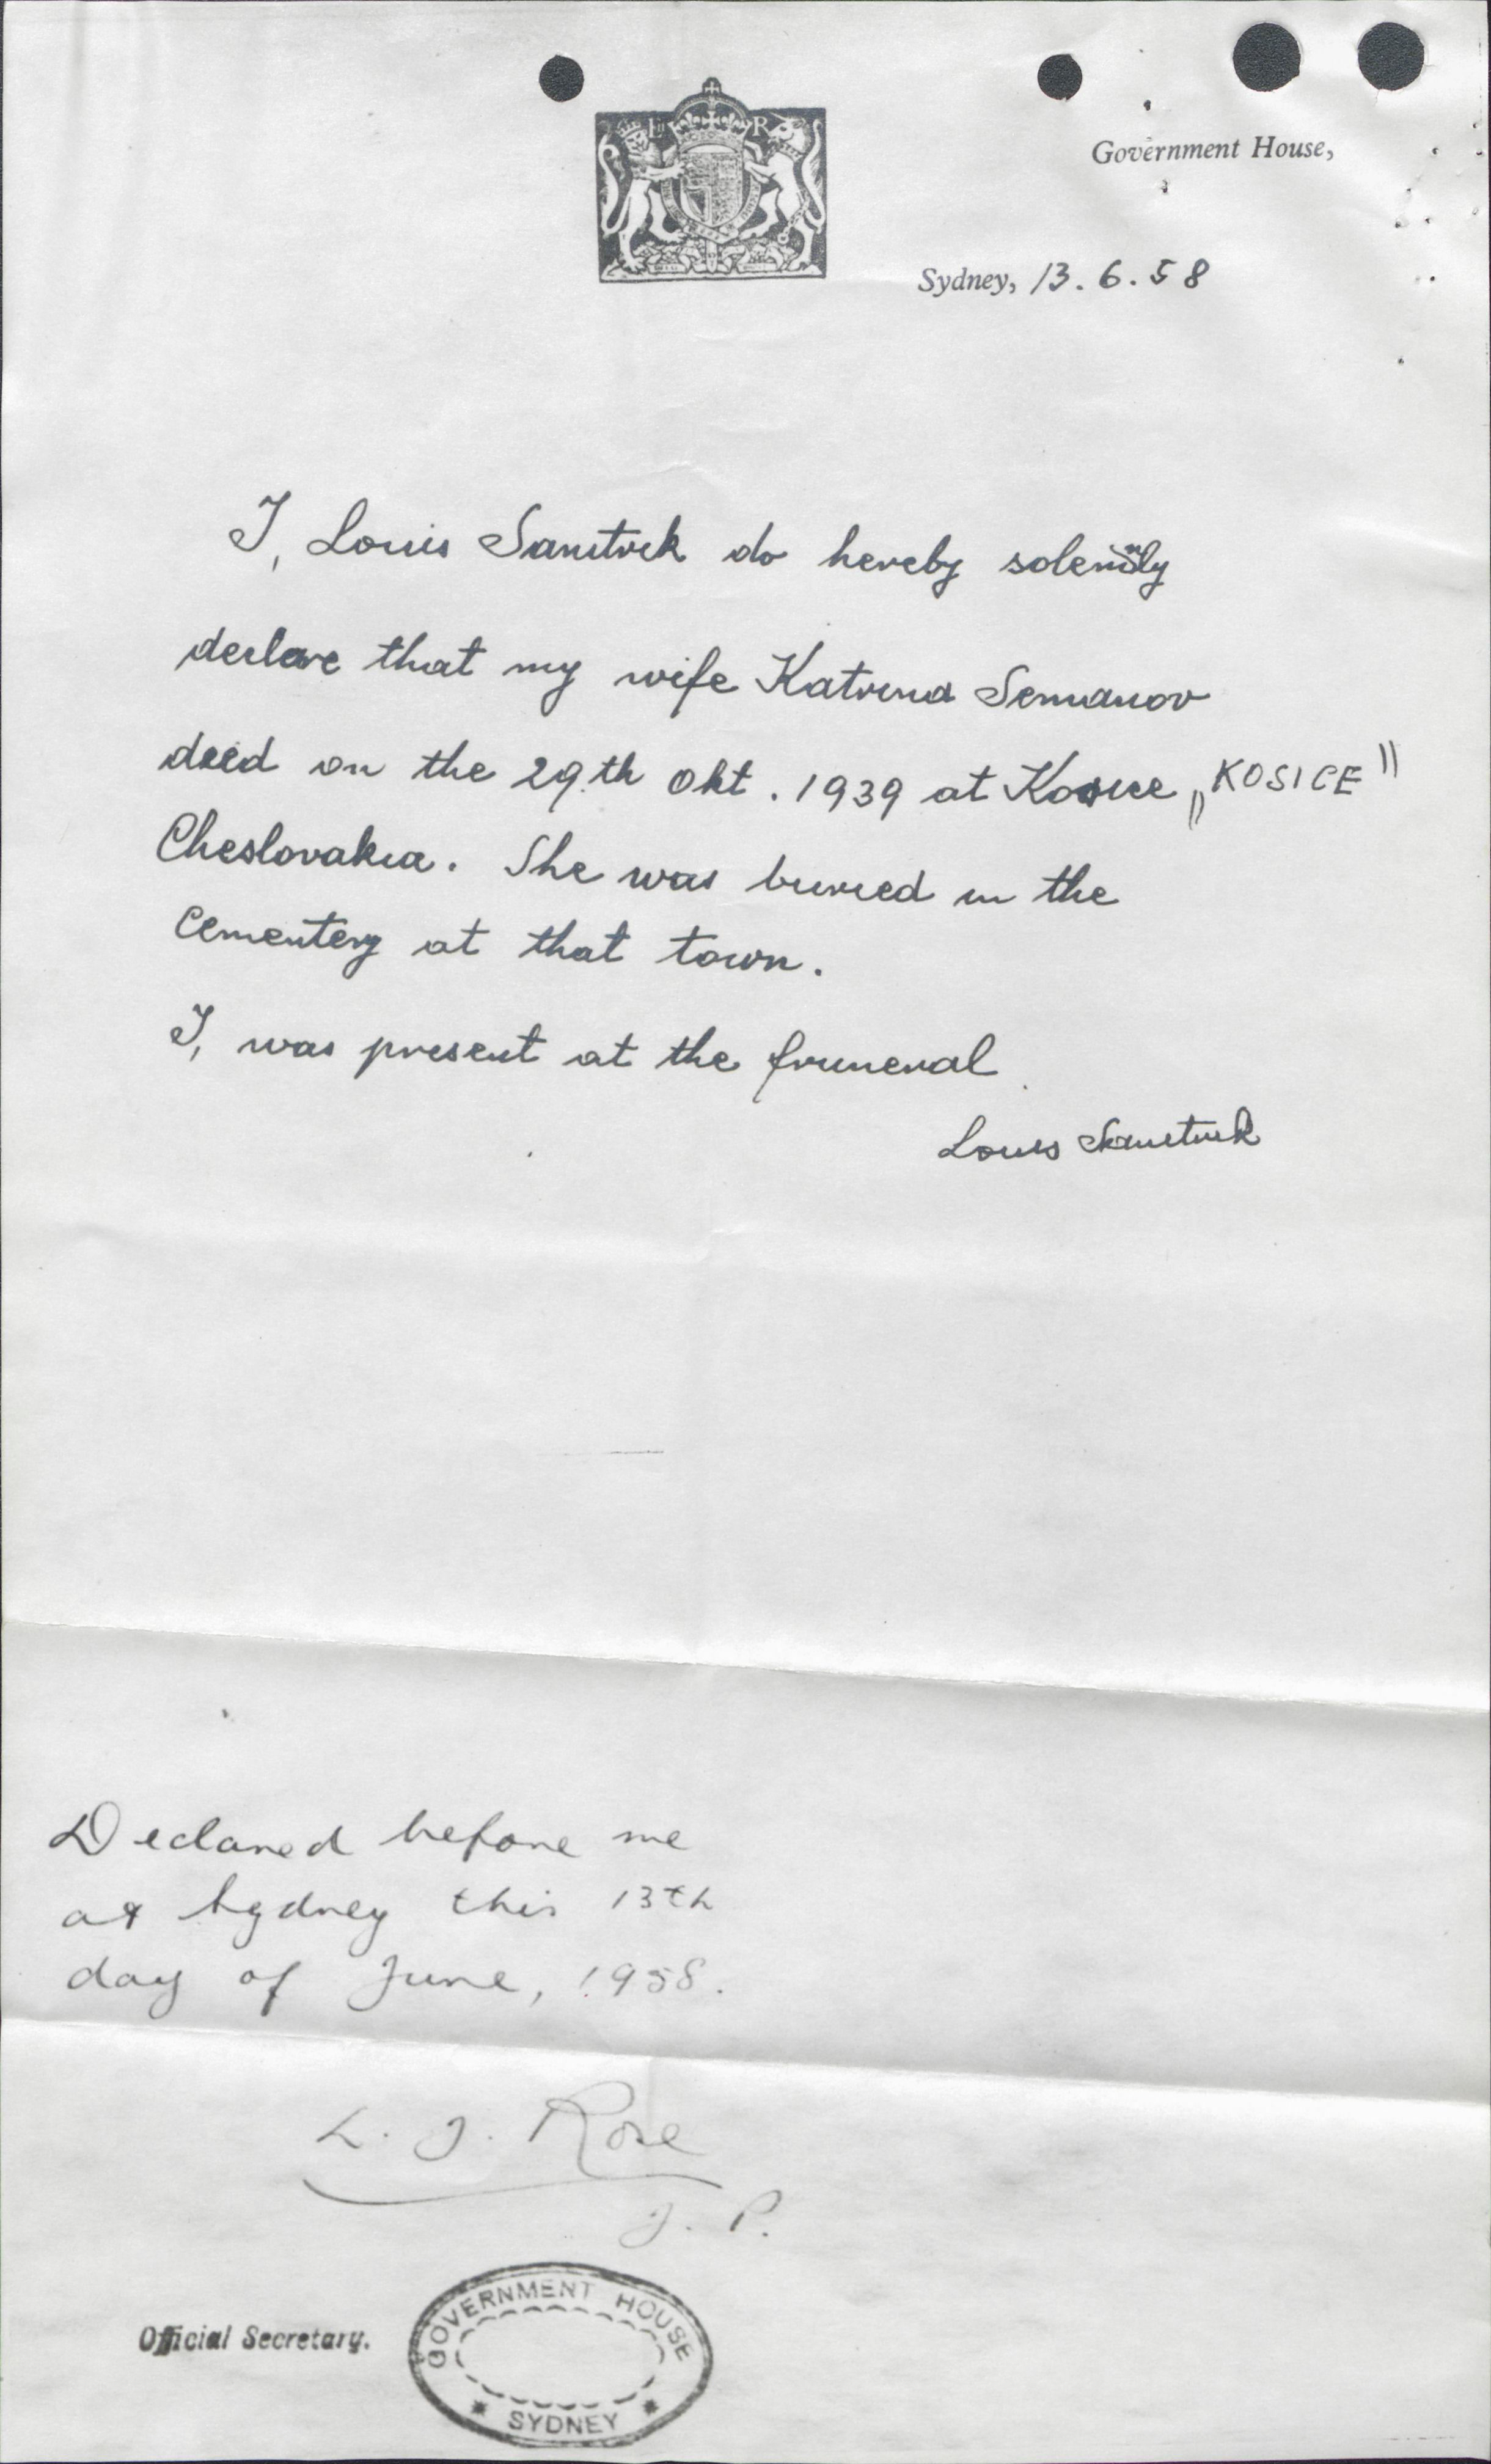 E II R
Government House,
Sydney, 13.6.58
I, Louis do hereby solemnly
declare that my wife Katrina Semanov
died on the 29.th Okt. 1939 at Kosice „KOSICE"
Cheslovakia. She was buried in the
Cementery at that town.
I, was present at the fruneral
Louis
Declared before me
at Sydney this 13th
day of June, 1958.
L. J. Rose
J. P.
Official Secretary.
GOVERNMENT HOUSE
* SYDNEY *